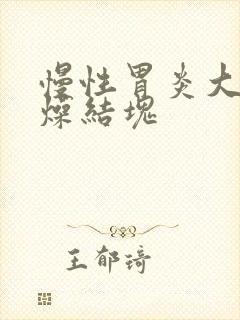 慢性胃炎大
燥結塊
王郁琦